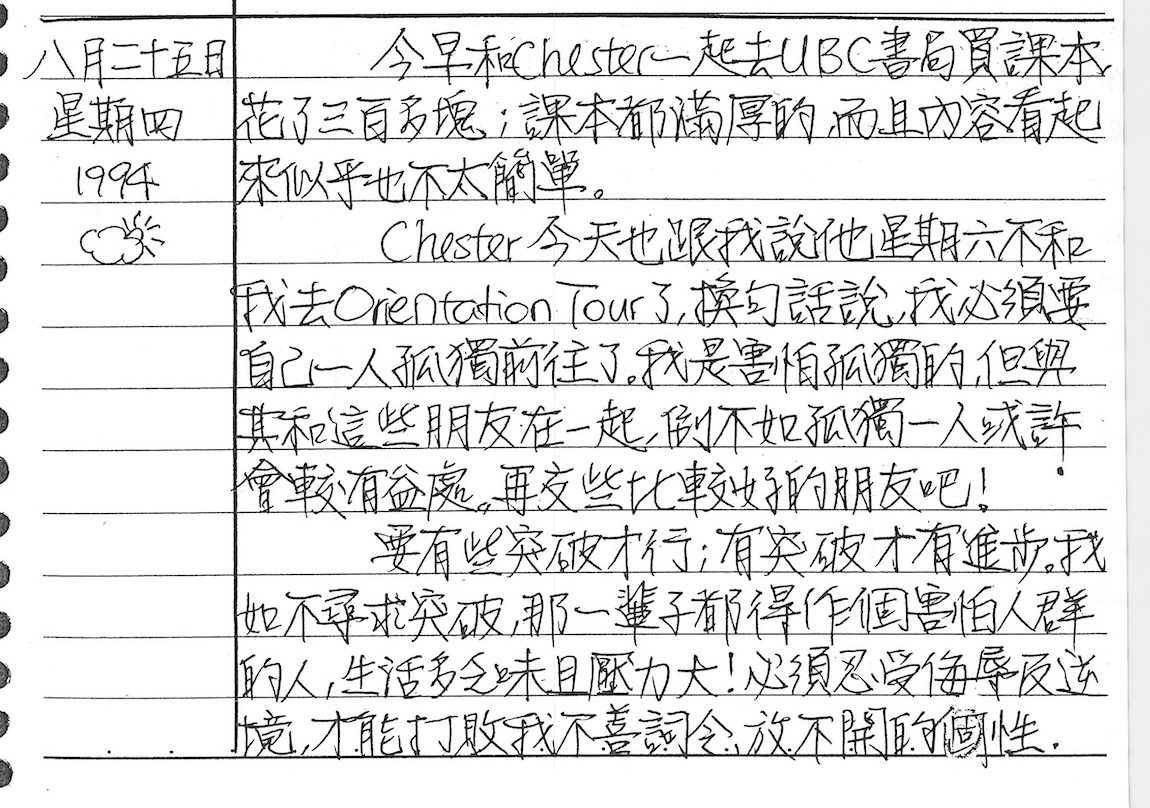 八月二十五日
星期四
1994
今早和Chester一起去UBC書局買課本,
花了三百多塊；課本都滿厚的,而且內容看起
來似乎也不太簡單。
Chester 今天也跟我說他星期六不和
我去Orientation Tour了,換句話說,我必須要
自己一人孤獨前往了。我是害怕孤獨的,但與
其和這些朋友在一起,倒不如孤獨一人或許
會較有益處。再交些比較好的朋友吧!
要有些突破才行；有突破才有進步。我
如不尋求突破,那一輩子都得作個害怕人群
的人,生活多乏味且壓力大!必須忍受侮辱反逆
境,才能打敗我不善詞令,放不開的個性.